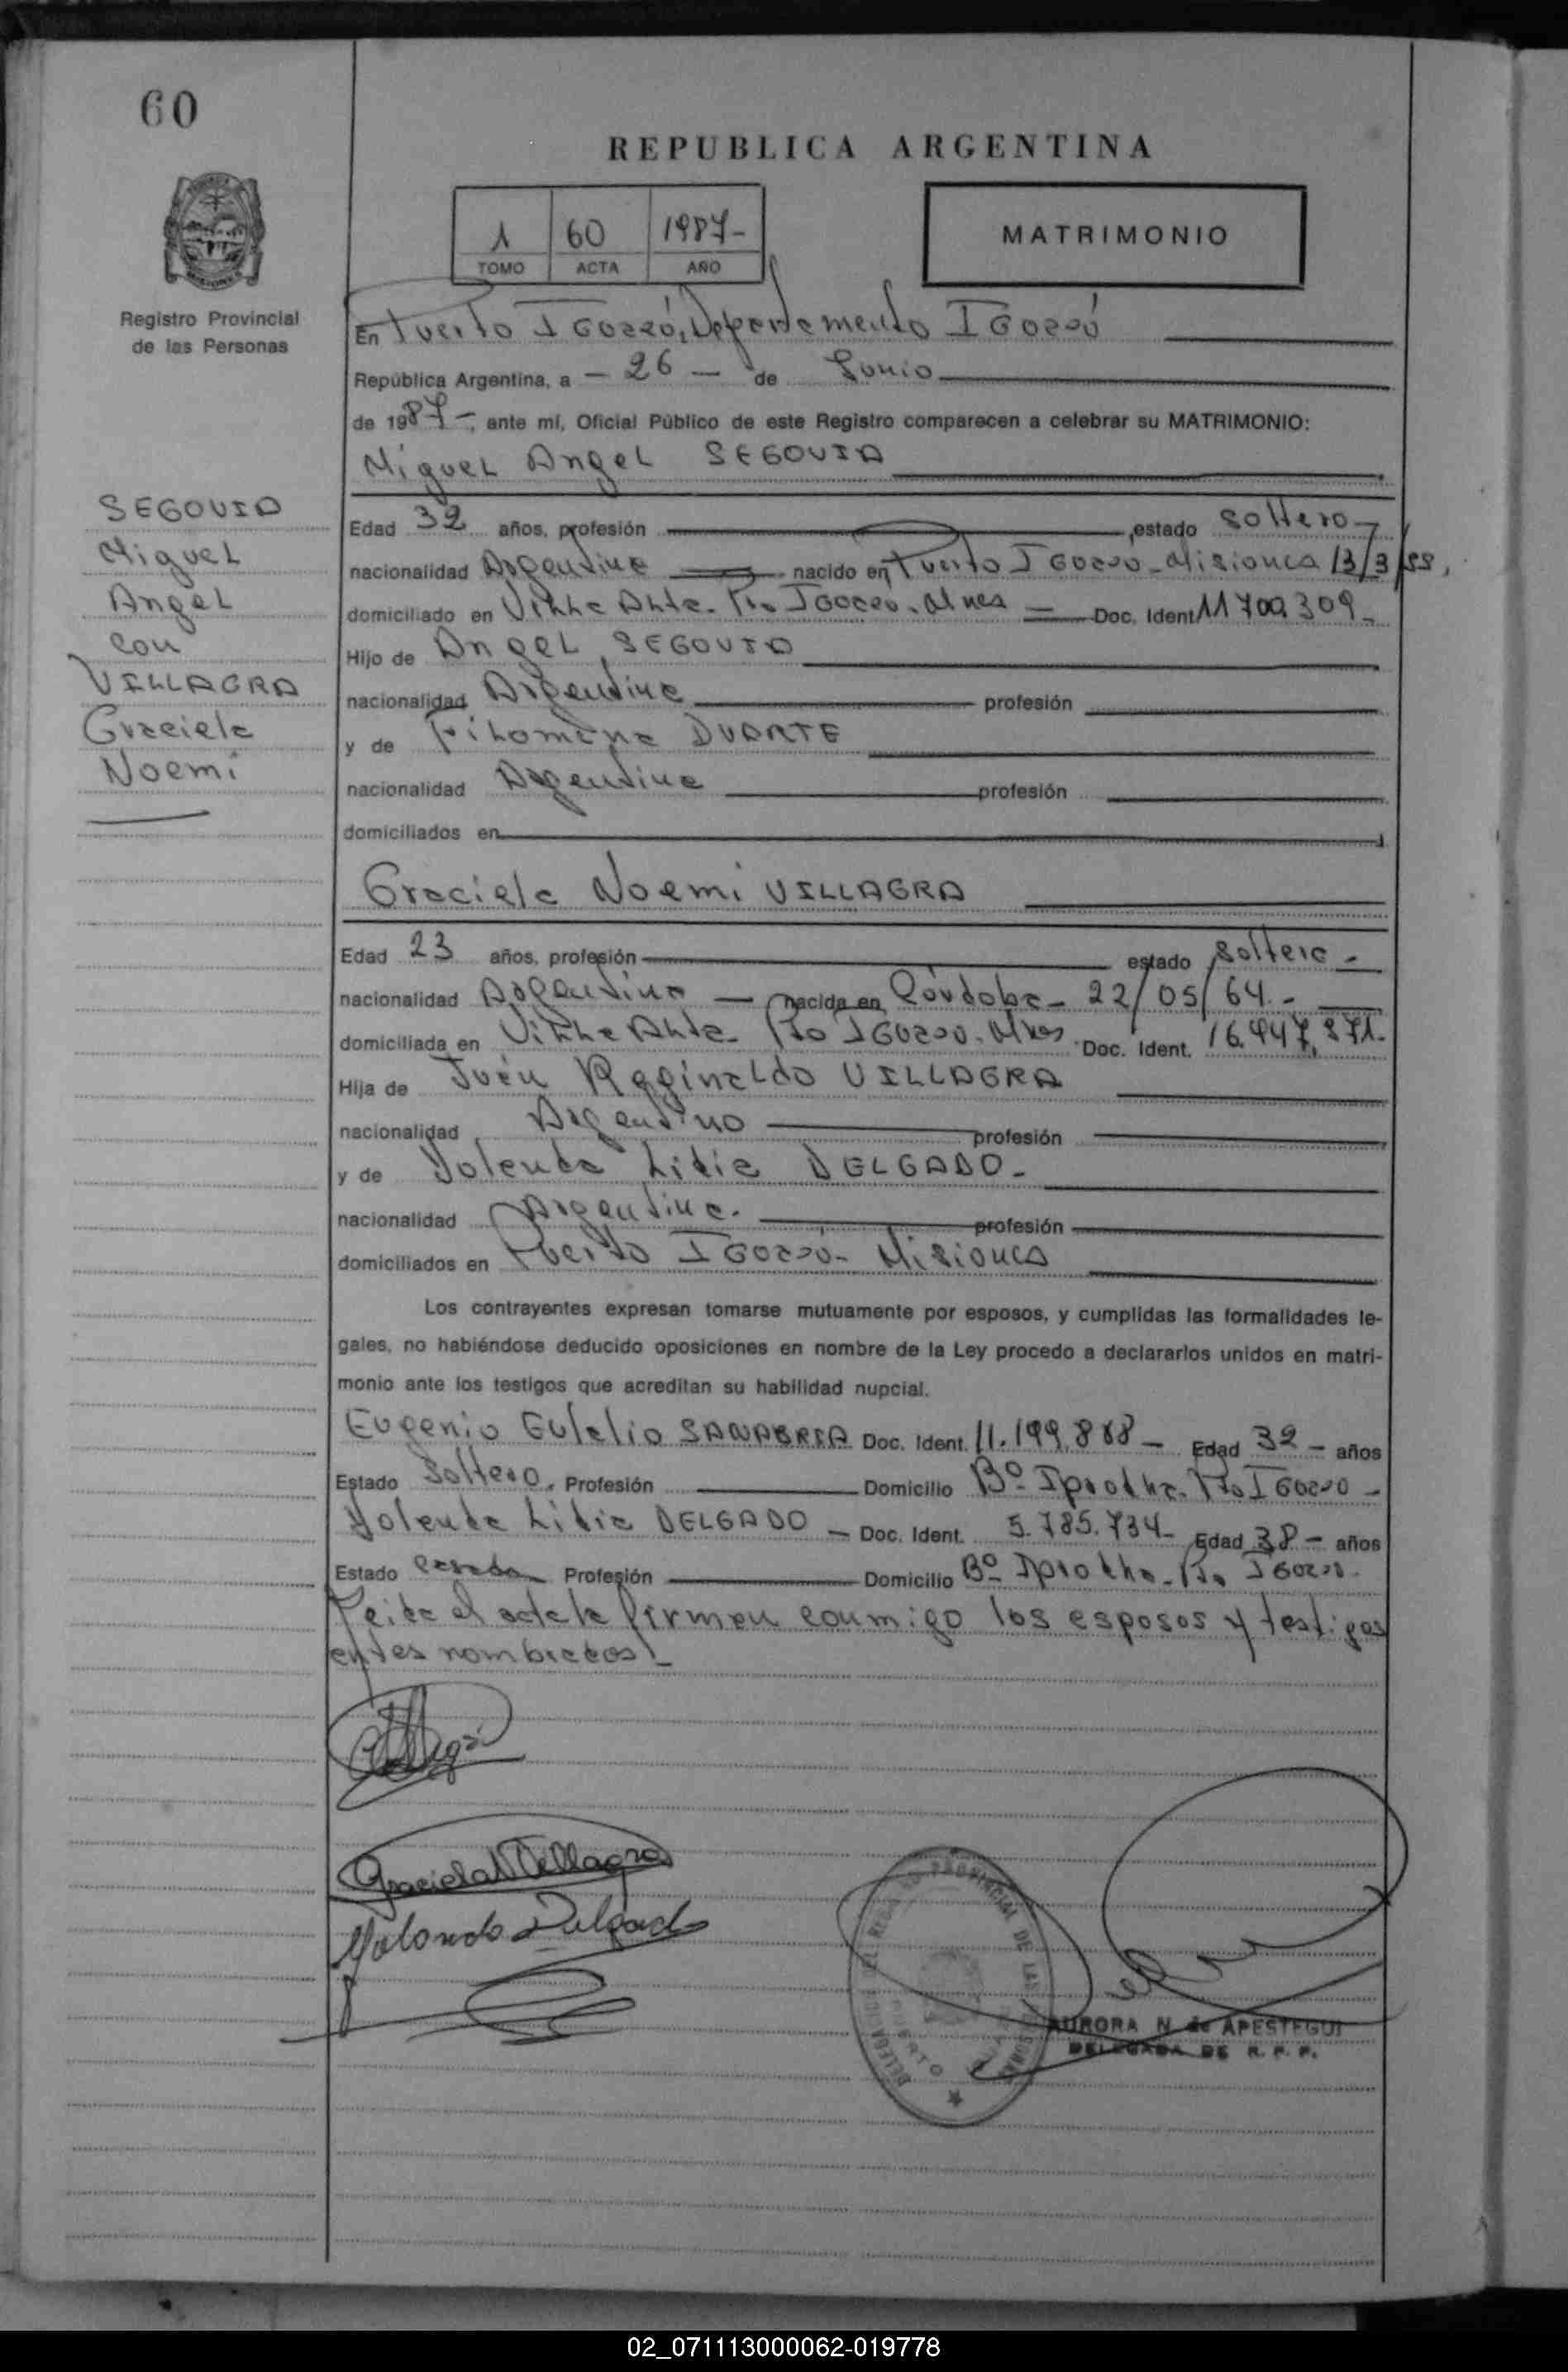 60
REPUBLICA ARGENTINA
1 60 1987-
TOMO ACTA AÑO
MATRIMONIO
Registro Provincial
de las Personas
En Puerto IGUAZÚ, Departamento IGUAZÚ
República Argentina, a - 26 - de Junio
de 1987-, ante mí, Oficial Público de este Registro comparecen a celebrar su MATRIMONIO:
Miguel Angel SEGOVIA
SEGOVIA
Miguel
Angel
con
VILLAGRA
Graciela
Noemi
Edad 32 años, profesión , estado soltero-
nacionalidad Argentina nacido en Puerto IGUAZÚ - Misiones 13/3/55,
domiciliado en Villa Alta - Pto IGUAZÚ - Mnes Doc. Ident. 11700309-
Hijo de Angel SEGOVIA
nacionalidad Argentina profesión
y de Filomena DUARTE
nacionalidad Argentina profesión
domiciliados en
Graciela Noemi VILLAGRA
Edad 23 años, profesión estado soltera -
nacionalidad Argentina - nacida en Córdoba - 22/05/64.-
domiciliada en Villa Alta - Pto IGUAZÚ - Mnes Doc. Ident. 16.447.371.-
Hija de Juan Reginaldo VILLAGRA
nacionalidad Argentino profesión
y de Yolanda Lidia DELGADO -
nacionalidad Argentina. profesión
domiciliados en Puerto IGUAZÚ - Misiones
Los contrayentes expresan tomarse mutuamente por esposos, y cumplidas las formalidades le-
gales, no habiéndose deducido oposiciones en nombre de la Ley procedo a declararlos unidos en matri-
monio ante los testigos que acreditan su habilidad nupcial.
Eugenio Eulalio SANABRIA Doc. Ident. 11.199.868 - Edad 32 - años
Estado Soltero. Profesión Domicilio Bº Iprodha - Pto IGUAZÚ -
Yolanda Lidia DELGADO - Doc. Ident. 5.785.734- Edad 38 - años
Estado casada Profesión Domicilio Bº Iprodha - Pto IGUAZÚ.
Leida el acta la firman conmigo los esposos y testigos
antes nombrados.-
Graciela N Villagra
Yolanda Delgado
DELEGACION DEL REGISTRO PROVINCIAL DE LAS PERSONAS
PUERTO
AURORA N. de APESTEGUI
DELEGADA DE R. P. P.
02_071113000062-019778